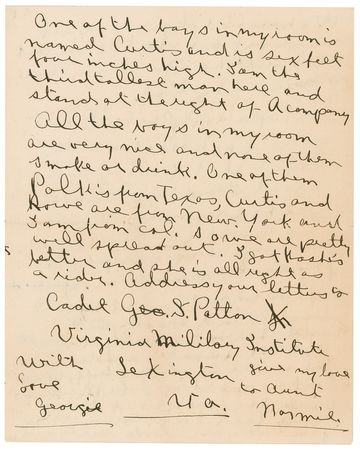 One of the boys in my room is
named Curtis and is sex feet
four inches high. I am the
third tallest man here and
stand at the right of A company
All the boys in my room
are very nice and none of them
smoke or drink. One of them
Polk is from Texas, Curtis and
Howe are from New. York and
I am from Cal. so we are pretty
well spread out. I got Hask's
letter and she is all right as
a rider. Address your letters to
Cadet Geo. S. Patton Jr
Virginia Military Institute
With Lexington give my love
Love to Aunt
Georgie Va. Nannie.